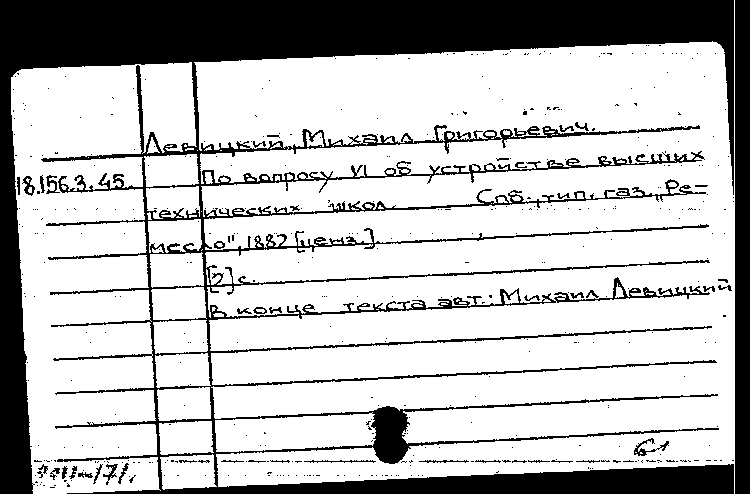 Левицкий, Михаил Григорьевич.
18.156.3.45. По вопросу VI об устройстве высших
технических школ. Спб., тип. газ. „Ре-
месло", 1882 [ценз.].
[2] с.
В конце текста авт.: Михаил Левицкий